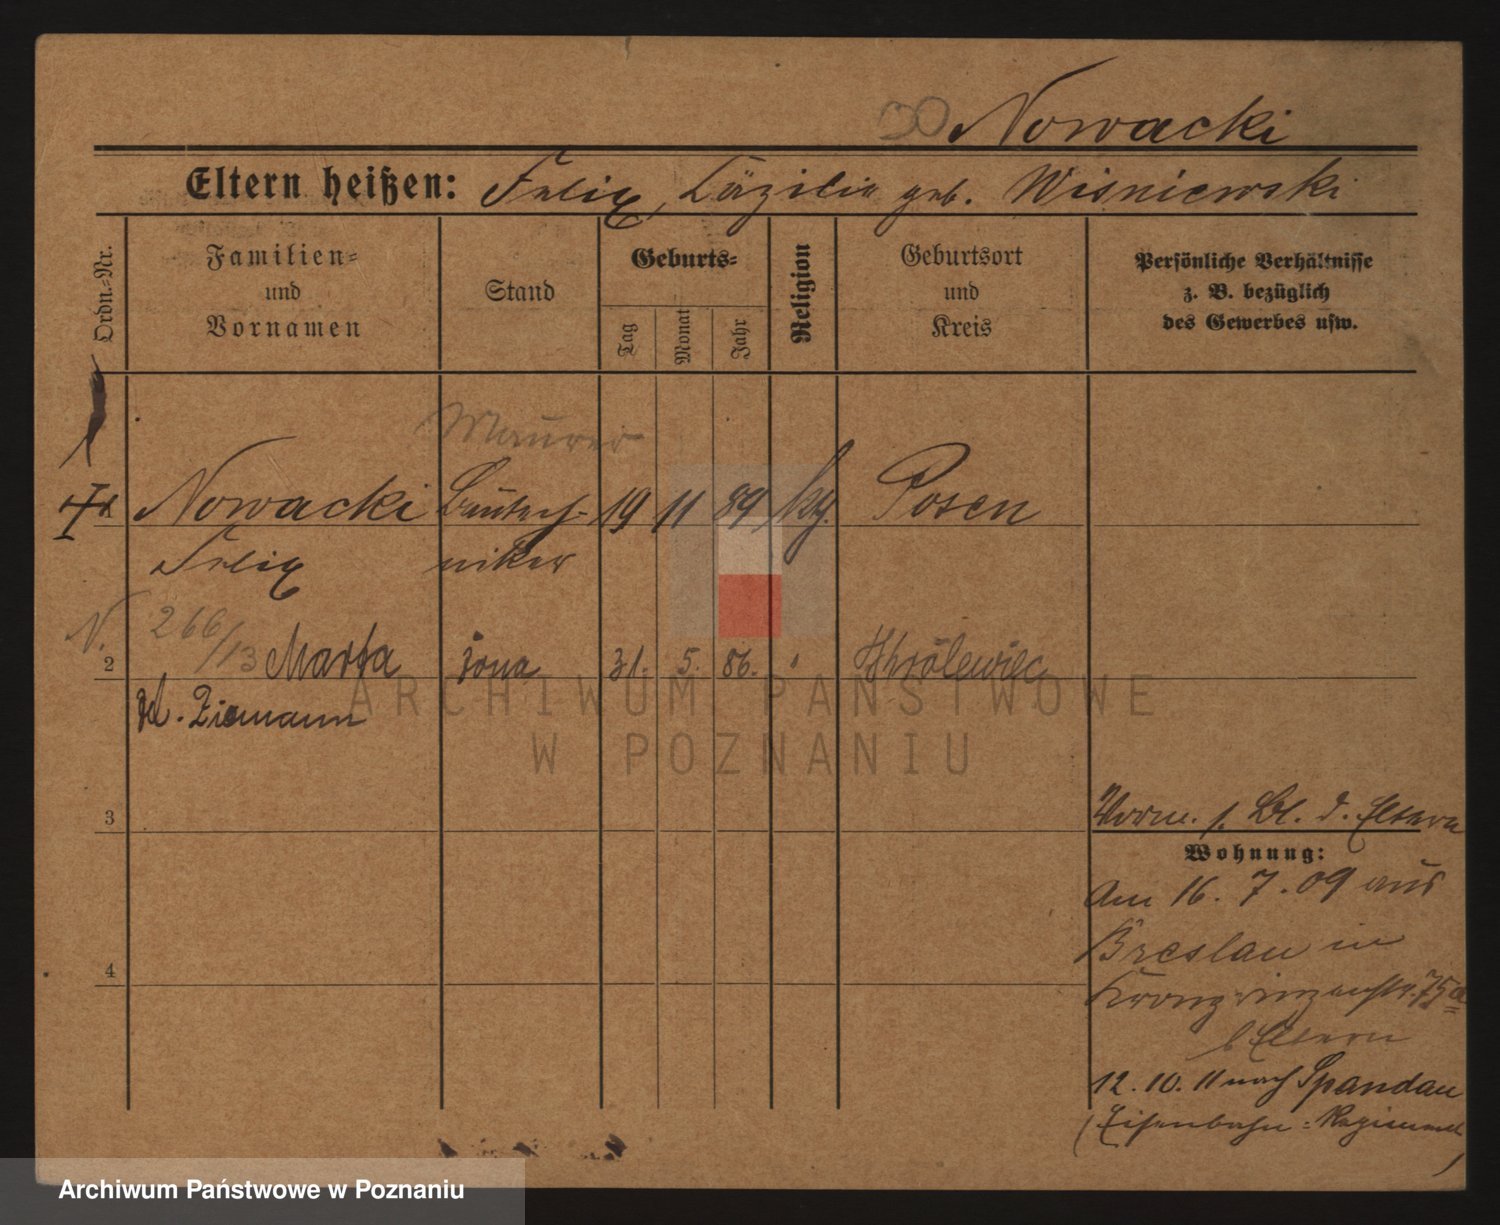 30 Nowacki
Eltern heißen: Felix, Cäzilie geb. Wisniewski
Ordn.-Nr.
Familien-
und
Vornamen
Stand
Geburts-
Tag
Monat
Jahr
Religion
Geburtsort
und
Kreis
Persönliche Verhältnisse
z. B. bezüglich
des Gewerbes usw.
Maurer
Nowacki Bautech- 19 11 89 kth. Posen
Felix niker
N. 266/13
2 Marta żona 31. 5. 86. Królewiec
Ziemann
3
Vorm. s. Bl. d. Eltern
Wohnung:
Am 16. 7. 09 aus
Breslau in
4
Kronprinzenstr. 75a
b Eltern
12. 10. 11 nach Spandau
(Eisenbahn-Regiment)
ARCHIWUM PAŃSTWOWE
W POZNANIU
Archiwum Państwowe w Poznaniu